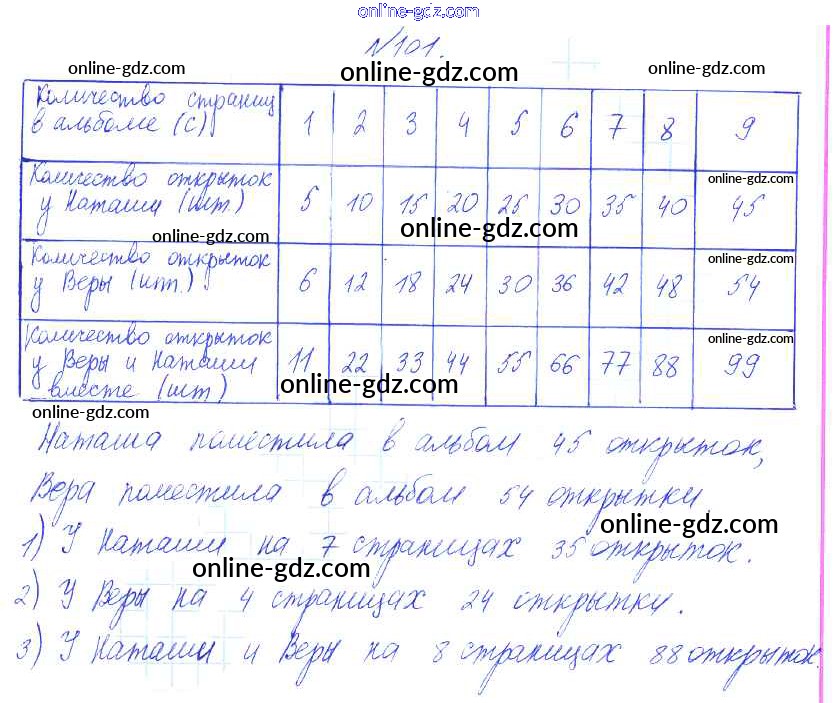 online-gdz.com
№101.
online-gdz.com online-gdz.com online-gdz.com
Количество страниц
в альбоме (с) 1 2 3 4 5 6 7 8 9
Количество открыток online-gdz.com
у Наташи (шт.) 5 10 15 20 25 30 35 40 45
online-gdz.com online-gdz.com
Количество открыток online-gdz.com
у Веры (шт.) 6 12 18 24 30 36 42 48 54
Количество открыток online-gdz.com
у Веры и Наташи 11 22 33 44 55 66 77 88 99
вместе (шт) online-gdz.com online-gdz.com
online-gdz.com
Наташа поместила в альбом 45 открыток,
Вера поместила в альбом 54 открытки
online-gdz.com
1) У Наташи на 7 страницах 35 открыток.
online-gdz.com
2) У Веры на 4 страницах 24 открытки.
online-gdz.com
3) У Наташи и Веры на 8 страницах 88 открыток.